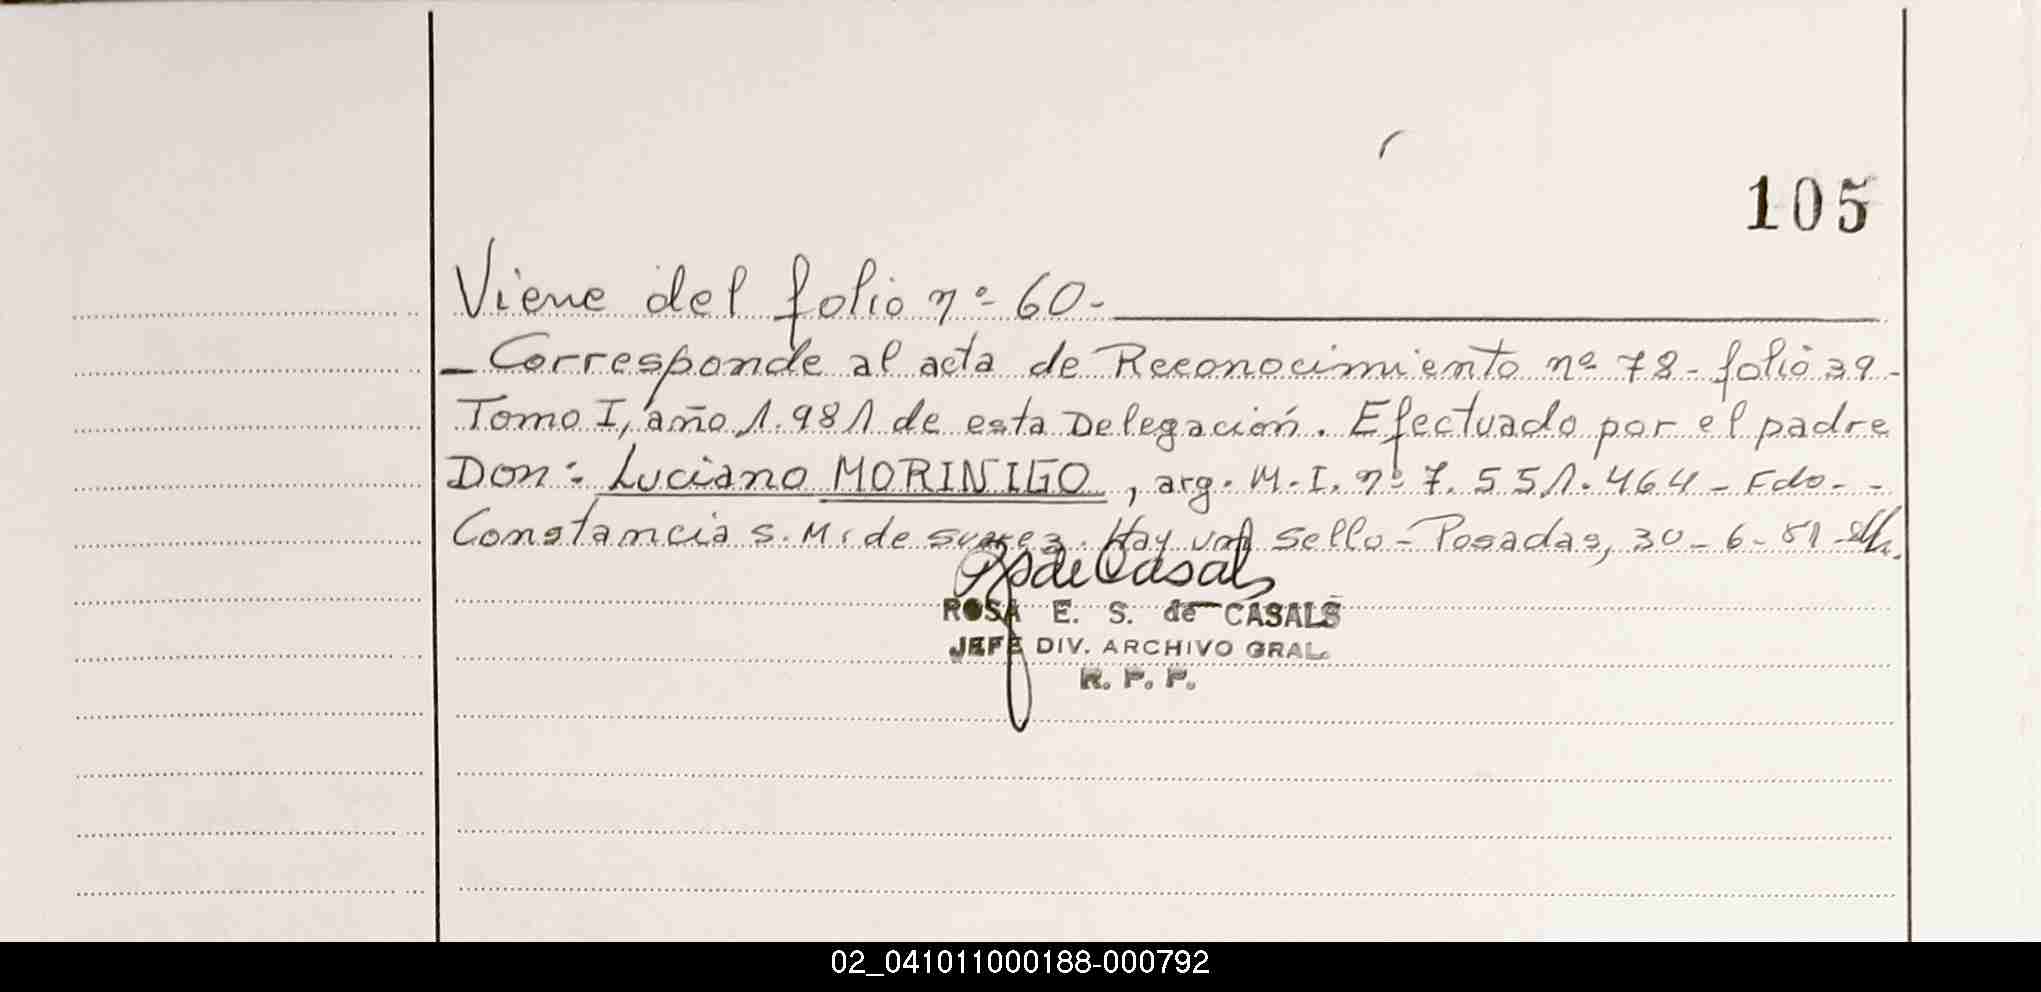 105
Viene del folio nº 60-
- Corresponde al acta de Reconocimiento nº 78 - folio 39 -
Tomo I, año 1.981 de esta Delegación. Efectuado por el padre
Don: Luciano MORINIGO, arg. M.I. nº 7.551.464 - Fdo. -
Constancia S. M. de Suarez. Hay un sello - Posadas, 30-6-81
R S de Casals
ROSA E. S. de CASALS
JEFE DIV. ARCHIVO GRAL.
R. P. P.
02_041011000188-000792